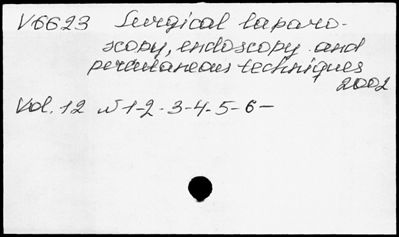 V6623 Surgical laparo-
scopy, endoscopy and
percutaneous techniques
2002
Vol. 12 N 1-2-3-4-5-6-